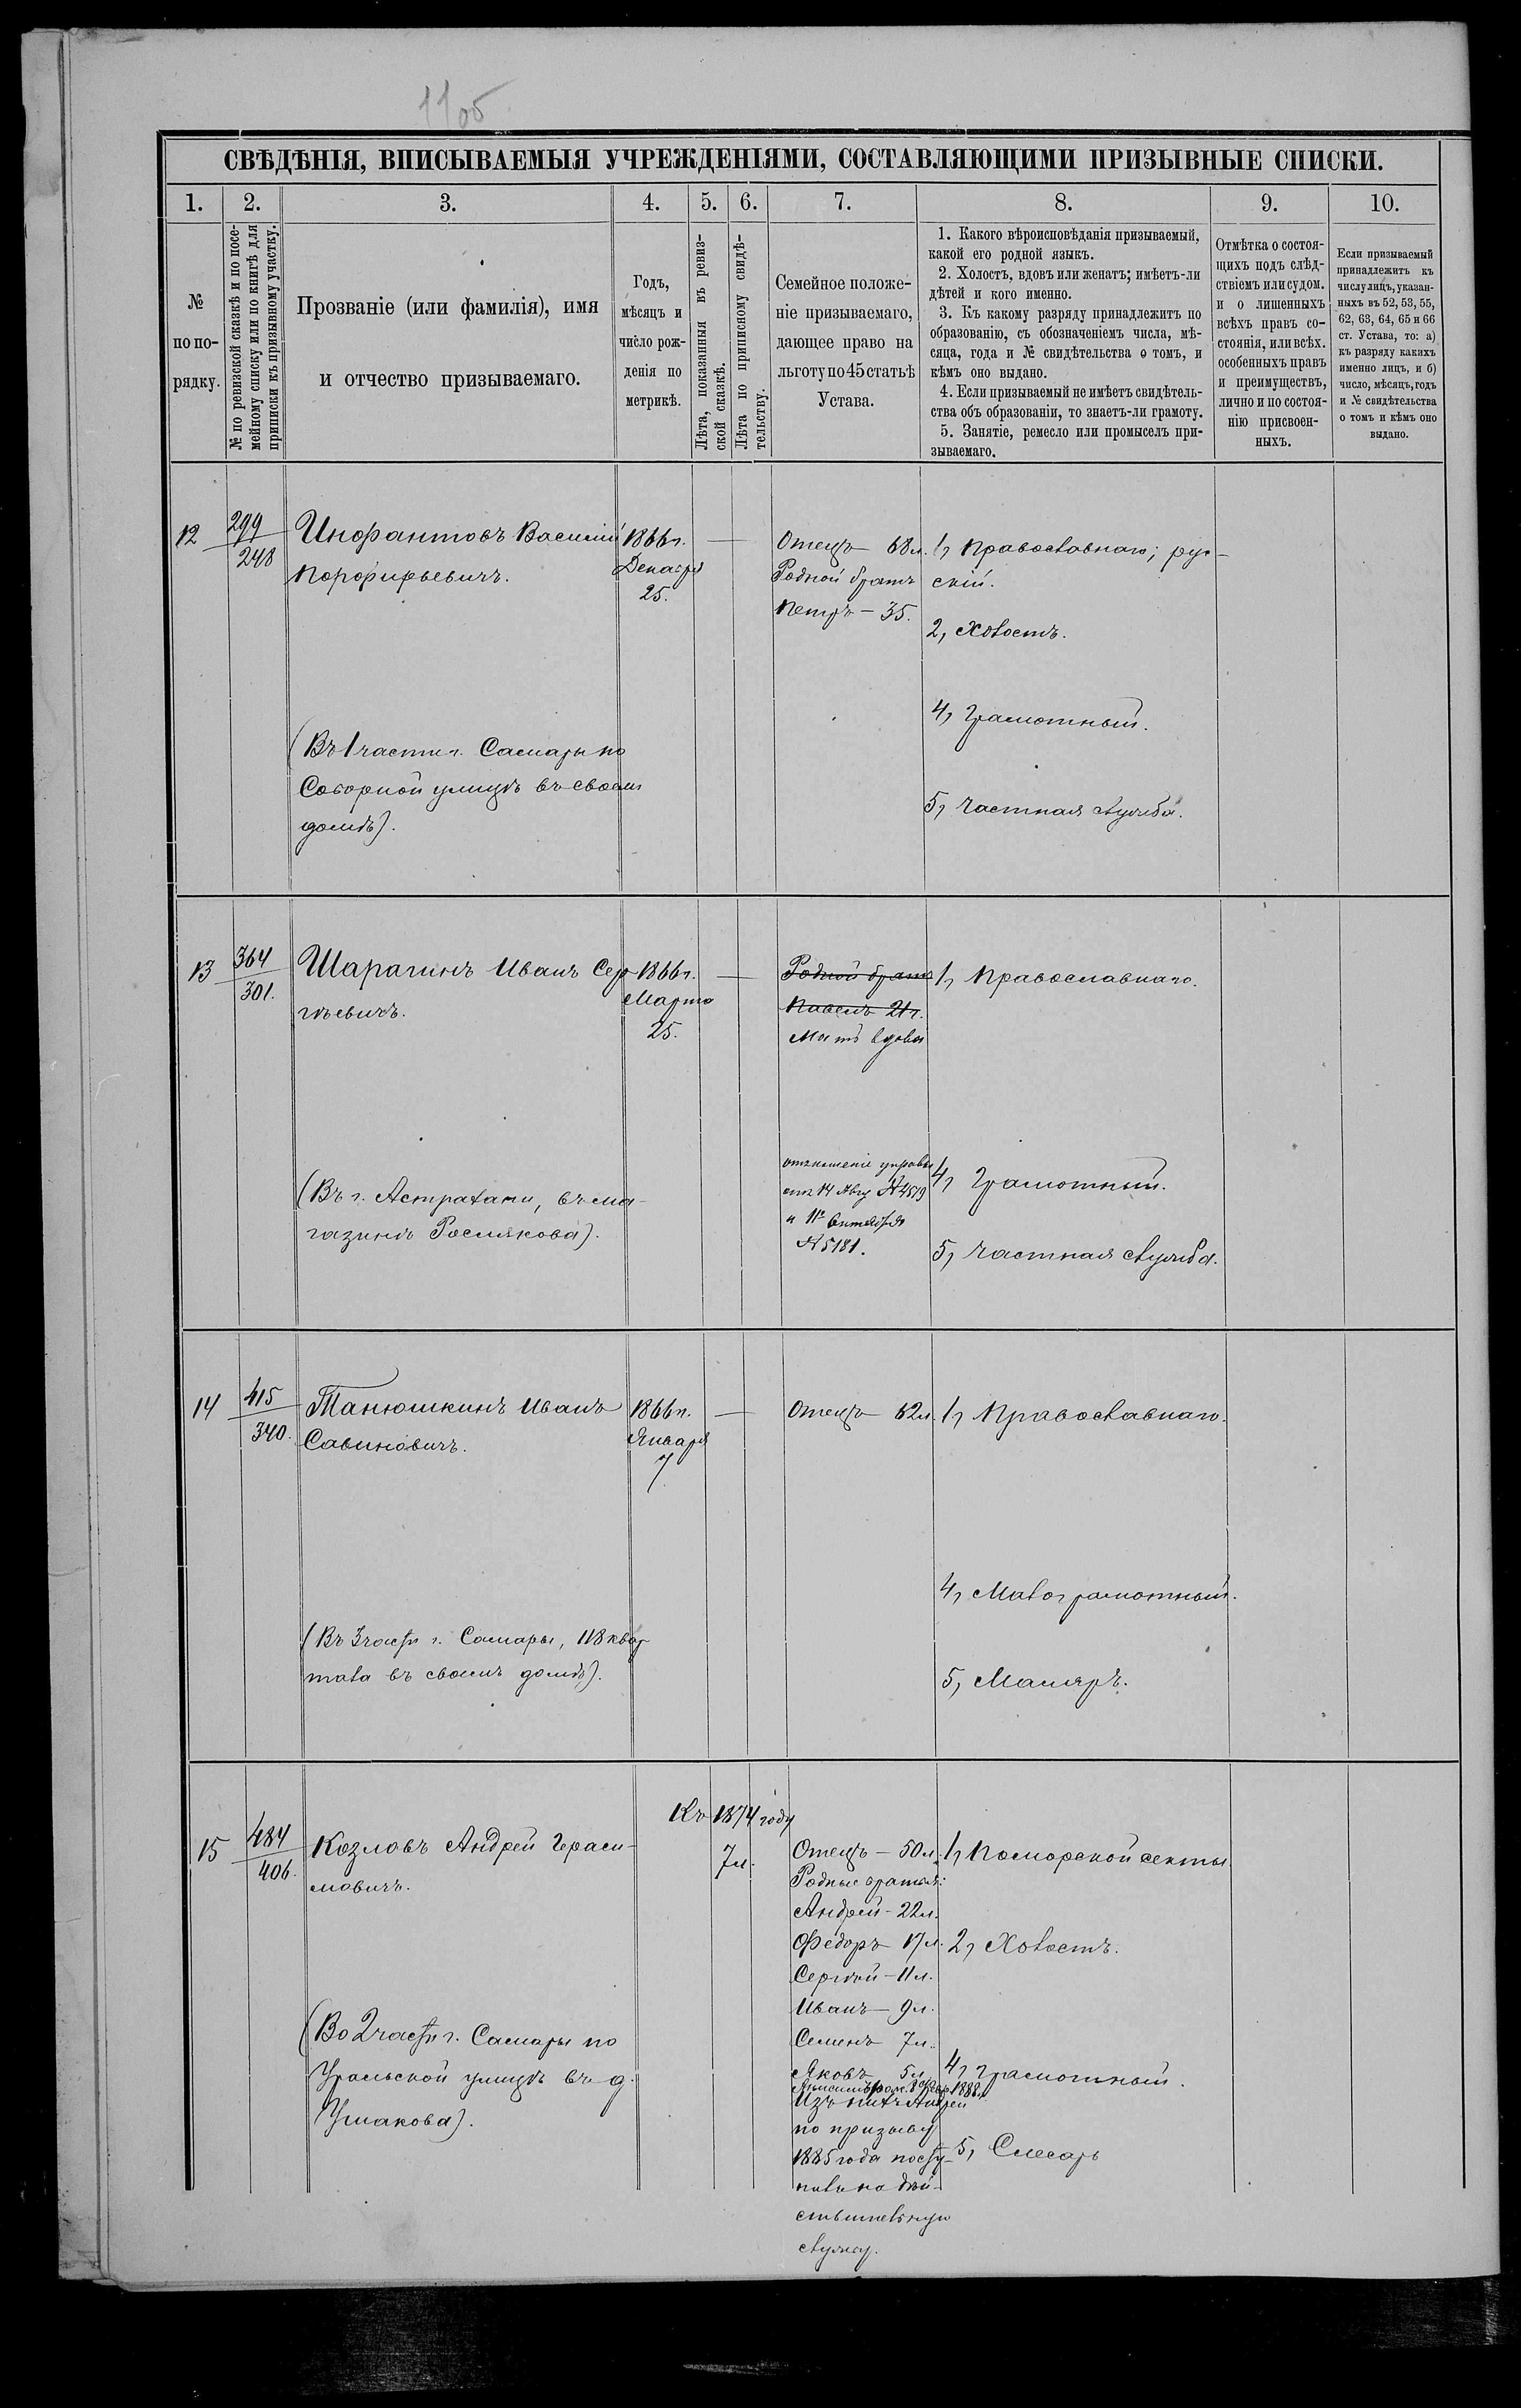 1105
СВѢДѢНІЯ, ВПИСЫВАЕМЫЯ УЧРЕЖДЕНІЯМИ, СОСТАВЛЯЮЩИМИ ПРИЗЫВНЫЕ СПИСКИ.
1. 2. 3. 4. 5. 6. 7. 8. 9. 10.
№
по по-
рядку.
№ по ревизской сказкѣ и по посе-
мейному списку или по книгѣ для
приписки къ призывному участку.
Прозваніе (или фамилія), имя
и отчество призываемаго.
Годъ,
мѣсяцъ и
число рож-
денія по
метрикѣ.
Лѣта, показанныя въ ревиз-
ской сказкѣ.
Лѣта по приписному свидѣ-
тельству.
Семейное положе-
ніе призываемаго,
дающее право на
льготу по 45 статьѣ
Устава.
1. Какого вѣроисповѣданія призываемый,
какой его родной языкъ.
2. Холостъ, вдовъ или женатъ; имѣетъ-ли
дѣтей и кого именно.
3. Къ какому разряду принадлежитъ по
образованію, съ обозначеніемъ числа, мѣ-
сяца, года и № свидѣтельства о томъ, и
кѣмъ оно выдано.
4. Если призываемый не имѣетъ свидѣтель-
ства объ образованіи, то знаетъ-ли грамоту.
5. Занятіе, ремесло или промыселъ при-
зываемаго.
Отмѣтка о состоя-
щихъ подъ слѣд-
ствіемъ или судом.
и о лишенныхъ
всѣхъ правъ со-
стоянія, или всѣх.
особенныхъ правъ
и преимуществъ,
лично и по состоя-
нію присвоен-
ныхъ.
Если призываемый
принадлежитъ къ
числу лицъ, указан-
ныхъ въ 52, 53, 55,
62, 63, 64, 65 и 66
ст. Устава, то: а)
къ разряду какихъ
именно лиц, и б)
число, мѣсяцъ, годъ
и № свидѣтельства
о томъ и кѣмъ оно
выдано.
12
299
248
Инфантовъ Василій
Порфирьевичъ.
(Въ 1 части г. Самары по
Соборной улицѣ въ своемъ
домѣ).
1866 г.
Декабря
25.
Отецъ – 68 л.
Родной братъ
Петръ – 35.
1, Православнаго; рус-
скій.
2, Холостъ.
4, Грамотный.
5, Частная служба.
13
364
301.
Шарагинъ Иванъ Сер-
гѣевичъ.
(Въ г. Астрахани, въ ма-
газинѣ Рослякова).
1866 г.
Марта
25.
Родной братъ
Павелъ 21 г.
Мать вдова
отношеніе управы
отъ 14 Авг № 4519
и 11го Сентября
№ 5181.
1, Православнаго.
4, Грамотный.
5, Частная служба.
14
415
340.
Танюшкинъ Иванъ
Савиновичъ.
(Въ 3 части г. Самары, 118 квар
тала въ своемъ домѣ).
1866 г.
Января
7
Отецъ – 62 л.
1, Православнаго.
4, Малограмотный.
5, Маляръ.
15
484
406.
Козловъ Андрей Гераси-
мовичъ.
(Во 2 части г. Самары по
Уральской улицѣ въ д.
Ушакова).
Къ 1874 году
7 л.
Отецъ – 50 л.
Родные братья:
Андрей – 22 л.
Федоръ 17 л.
Сергѣй – 11 л.
Иванъ – 9 л.
Семенъ 7 л.
Яковъ 5 л.
1888 г.
Изъ нихъ Андрей
по призыву
1885 года посту-
пилъ на дѣй-
ствительную
службу.
1, Поморской секты.
2, Холостъ.
4, Грамотный.
5, Слесарь